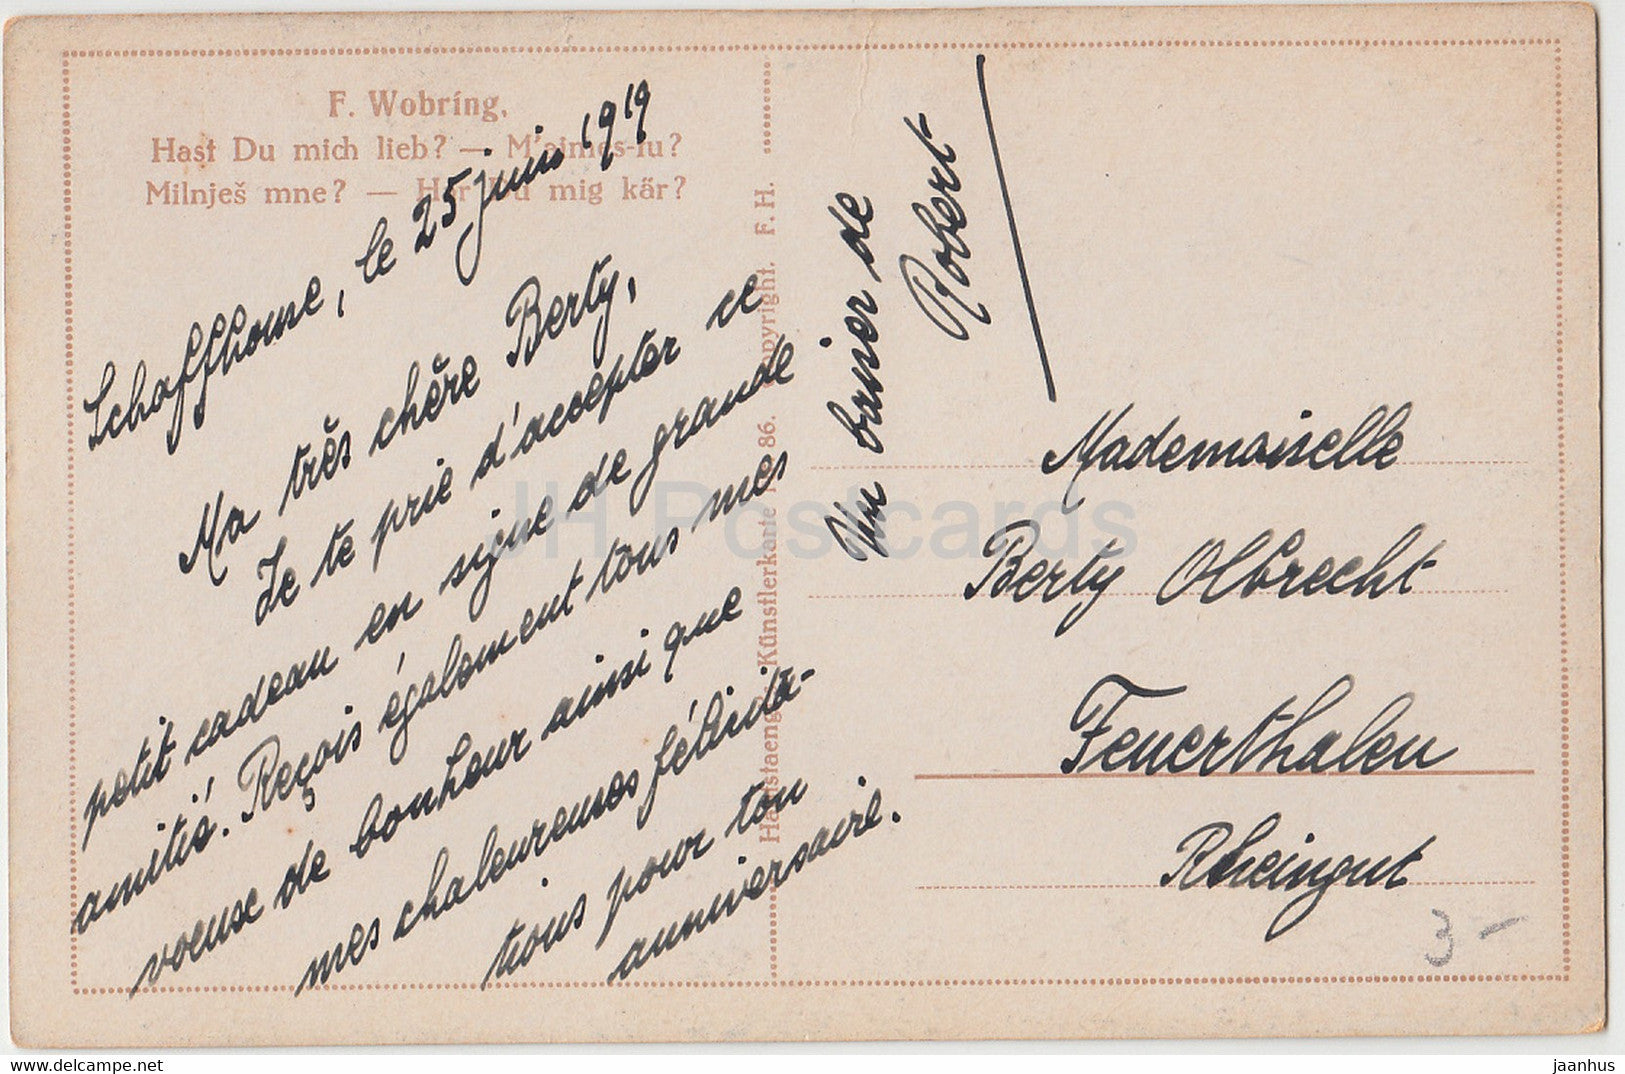 F. Wobring,
Hast Du mich lieb? — M'aimes-tu?
Milnješ mne? — Har Du mig kär?
Schaffhouse, le 25 juin 1919
Ma très chère Berty,
Je te prie d'accepter ce
petit cadeau en signe de grande
amitié. Reçois également tous mes
voeuse de bonheur ainsi que
mes chaleureuses félicita-
tions pour ton
anniversaire.
Un baiser de
Robert
Künstlerkarte 86. Copyright. F. H.
Mademoiselle
Berty Olbrecht
Feuerthalen
Rheingut
3 -
JH Postcards
delcampe.net
jaanhus